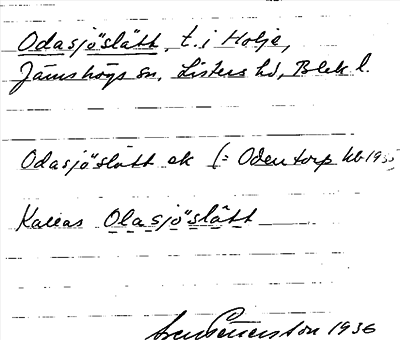 Odasjöslätt, t. i Holje,
Jämshögs sn, Listers hd, Blek l.
Odasjöslätt ek (= Odentorp kb 1935
Kallas Olasjöslätt
1936